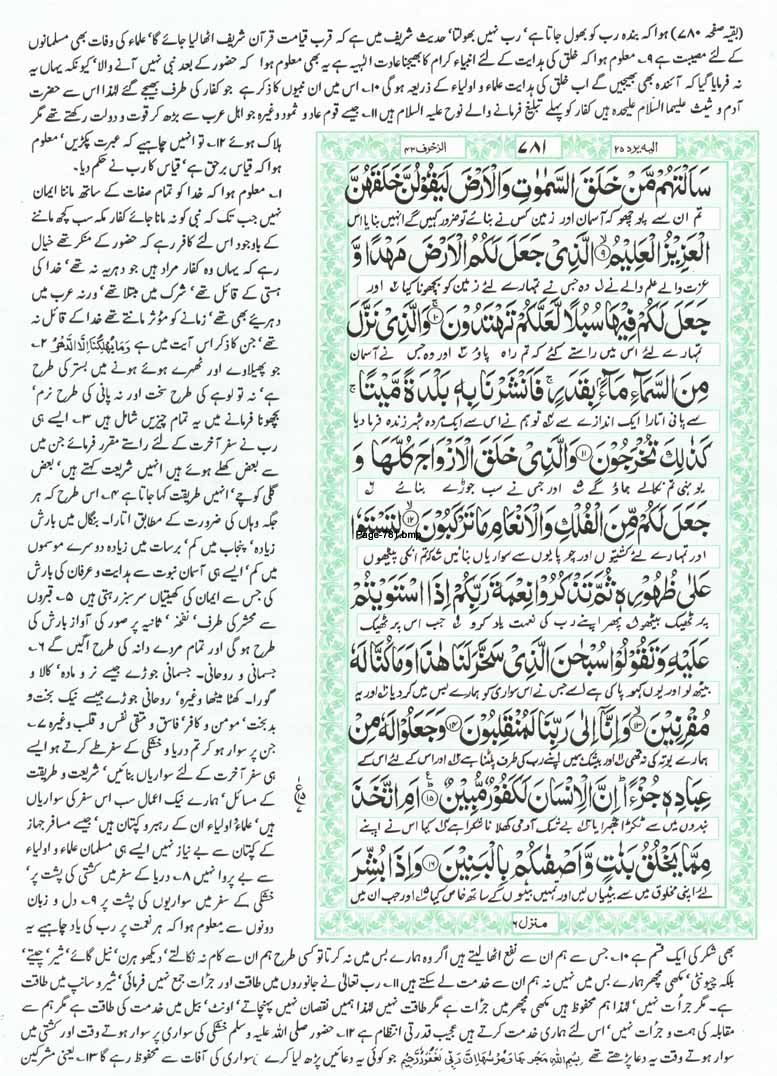 (بقیہ صفحہ ۷۸۰) ہوا کہ بندہ رب کو بھول جاتا ہے' رب نہیں بھولتا' حدیث شریف میں ہے کہ قرب قیامت قرآن شریف اٹھا لیا جائے گا' علماء کی وفات بھی مسلمانوں
کے لئے مصیبت ہے ۹۔ معلوم ہوا کہ خلق کی ہدایت کے لئے انبیاء کرام کا بھیجنا عادت الٰہیہ ہے یہ بھی معلوم ہوا کہ حضور کے بعد نبی نہیں آنے والا' کیونکہ یہاں یہ
نہ فرمایا گیا کہ آئندہ بھی بھیجیں گے اب خلق کی ہدایت علماء و اولیاء کے ذریعہ ہو گی ۱۰۔ اس میں ان نبیوں کا ذکر ہے جو کفار کی طرف بھیجے گئے لہٰذا اس سے حضرت
آدم و شیث علیہما السلام علیحدہ ہیں کفار کو پہلے تبلیغ فرمانے والے نوح علیہ السلام ہیں ۱۱۔ جیسے قوم عاد و ثمود وغیرہ جو اہل عرب سے بڑھ کر قوت و دولت رکھتے تھے مگر
ہلاک ہوئے ۱۲۔ تو انہیں چاہیے کہ عبرت پکڑیں' معلوم
ہوا کہ قیاس برحق ہے' قیاس کا رب نے حکم دیا۔
۱۔ معلوم ہوا کہ خدا کو تمام صفات کے ساتھ ماننا ایمان
نہیں جب تک کہ نبی کو نہ مانا جائے کفار مکہ سب کچھ ماننے
کے باوجود اس لئے کافر رہے کہ حضور کے منکر تھے خیال
رہے کہ یہاں وہ کفار مراد ہیں جو دہریہ نہ تھے' خدا کی
ہستی کے قائل تھے' شرک میں مبتلا تھے' ورنہ عرب میں
دہریے بھی تھے' زمانے کو مؤثر مانتے تھے خدا کے قائل نہ
تھے' جن کا ذکر اس آیت میں ہے وَمَا یُہْلِکُنَا اِلَّا الدَّھْرُ ۲۔
جو پھیلاوے اور ٹھہرے ہوئے ہونے میں بستر کی طرح
ہے' نہ تو لوہے کی طرح سخت اور نہ پانی کی طرح نرم'
بچھونا فرمانے میں یہ تمام چیزیں شامل ہیں ۳۔ ایسے ہی
رب نے سفر آخرت کے لئے راستے مقرر فرمائے جن میں
سے بعض کھلے ہوئے ہیں انہیں شریعت کہتے ہیں' بعض
گلی کوچے' انہیں طریقت کہا جاتا ہے ۴۔ اس طرح کہ ہر
جگہ وہاں کی ضرورت کے مطابق اتارا۔ بنگال میں بارش
زیادہ' پنجاب میں کم' برسات میں زیادہ دوسرے موسموں
میں کم' ایسے ہی آسمان نبوت سے ہدایت و عرفان کی بارش
کی جس سے ایمان کی کھیتیاں سرسبز رہتی ہیں ۵۔ قبروں
سے محشر کی طرف' نفخۂ ثانیہ پر صور کی آواز بارش کی
طرح ہو گی اور تمام مردے دانہ کی طرح اگیں گے ۶۔
جسمانی و روحانی۔ جسمانی جوڑے جیسے نر و مادہ' کالا و
گورا۔ کھٹا میٹھا وغیرہ' روحانی جوڑے جیسے نیک بخت و
بدبخت' مومن و کافر' فاسق و متقی نفس و قلب وغیرہ ۷۔
جن پر سوار ہو کر تم دریا و خشکی کے سفر طے کرتے ہو ایسے
ہی سفر آخرت کے لئے سواریاں بنائیں' شریعت و طریقت
کے مسائل' ہمارے نیک اعمال سب اس سفر کی سواریاں
ہیں' علماء اولیاء ان کے رہبر و کپتان ہیں' جیسے مسافر جہاز
کے کپتان سے بے نیاز نہیں ایسے ہی مسلمان علماء و اولیاء
سے بے پروا نہیں ۸۔ دریا کے سفر میں کشتی کی پشت پر'
خشکی کے سفر میں سواریوں کی پشت پر ۹۔ دل و زبان
دونوں سے معلوم ہوا کہ ہر نعمت پر رب کی یاد چاہیے یہ
الیہ یرد ۲۵
۷۸۱
الزخرف ۴۳
سَاَلْتَہُمْ مَّنْ خَلَقَ السَّمٰوٰتِ وَالْاَرْضَ لَیَقُوْلُنَّ خَلَقَہُنَّ
تم ان سے پوچھو کہ آسمان اور زمین کس نے بنائے تو ضرور کہیں گے انہیں بنایا اس
الْعَزِیْزُ الْعَلِیْمُ ۹ الَّذِیْ جَعَلَ لَکُمُ الْاَرْضَ مَہْدًا وَّ
عزت والے علم والے نے وہ جس نے تمہارے لئے زمین کو بچھونا کیا اور
جَعَلَ لَکُمْ فِیْہَا سُبُلًا لَّعَلَّکُمْ تَہْتَدُوْنَ ۱۰ وَالَّذِیْ نَزَّلَ
تمہارے لئے اس میں راستے کئے کہ تم راہ پاؤ اور وہ جس نے آسمان
مِنَ السَّمَآءِ مَآءً بِقَدَرٍ فَاَنْشَرْنَا بِہٖ بَلْدَۃً مَّیْتًا
سے پانی اتارا ایک اندازے سے تو ہم نے اس سے ایک مردہ شہر زندہ فرما دیا
کَذٰلِکَ تُخْرَجُوْنَ ۱۱ وَالَّذِیْ خَلَقَ الْاَزْوَاجَ کُلَّہَا وَ
یونہی تم نکالے جاؤ گے اور جس نے سب جوڑے بنائے
جَعَلَ لَکُمْ مِّنَ الْفُلْکِ وَالْاَنْعَامِ مَا تَرْکَبُوْنَ ۱۲ لِتَسْتَوٗا
Page-781.bmp
اور تمہارے لئے کشتیوں اور چوپایوں سے سواریاں بنائیں کہ تم انکی پیٹھوں
عَلٰی ظُہُوْرِہٖ ثُمَّ تَذْکُرُوْا نِعْمَۃَ رَبِّکُمْ اِذَا اسْتَوَیْتُمْ
پر ٹھیک بیٹھو پھر اپنے رب کی نعمت یاد کرو جب اس پر ٹھیک
عَلَیْہِ وَتَقُوْلُوْا سُبْحٰنَ الَّذِیْ سَخَّرَ لَنَا ہٰذَا وَمَا کُنَّا لَہٗ
بیٹھ لو اور یوں کہو پاکی ہے اسے جس نے اس سواری کو ہمارے بس میں کر دیا اور یہ
مُقْرِنِیْنَ ۱۳ وَاِنَّآ اِلٰی رَبِّنَا لَمُنْقَلِبُوْنَ ۱۴ وَجَعَلُوْا لَہٗ مِنْ
ہمارے بوتے کی نہ تھی اور بیشک ہمیں اپنے رب کی طرف پلٹنا ہے اور اس کے لئے اس کے
عِبَادِہٖ جُزْءًا اِنَّ الْاِنْسَانَ لَکَفُوْرٌ مُّبِیْنٌ ۱۵ اَمِ اتَّخَذَ
بندوں میں سے ٹکڑا ٹھہرایا بے شک آدمی کھلا ناشکرا ہے کیا اس نے اپنے
مِمَّا یَخْلُقُ بَنٰتٍ وَّاَصْفٰکُمْ بِالْبَنِیْنَ ۱۶ وَاِذَا بُشِّرَ
لئے اپنی مخلوق میں سے بیٹیاں لیں اور تمہیں بیٹوں کے ساتھ خاص کیا اور جب ان میں
منزل ۶
بھی شکر کی ایک قسم ہے ۱۰۔ جس سے ہم ان سے نفع اٹھا لیتے ہیں اگر وہ ہمارے بس میں نہ کرتا تو کسی طرح ہم ان سے کام نہ نکالتے' دیکھو ہرن' نیل گائے' شیر' چیتے'
بلکہ چیونٹی' مکھی مچھر ہمارے بس میں نہیں نہ ہم ان سے خدمت لے سکتے ہیں ۱۱۔ رب تعالیٰ نے جانوروں میں طاقت اور جرأت جمع نہیں فرمائی' شیر و سانپ میں طاقت
ہے۔ مگر جرأت نہیں' لہٰذا ہم محفوظ ہیں مکھی مچھر میں جرأت ہے مگر طاقت نہیں لہٰذا ہمیں نقصان نہیں پہنچاتے' اونٹ' بیل میں خدمت کی طاقت ہے مگر ہم سے
مقابلہ کی ہمت و جرأت نہیں' اس لئے ہماری خدمت کرتے ہیں عجیب قدرتی انتظام ہے ۱۲۔ حضور صلی اللہ علیہ وسلم خشکی کی سواری پر سوار ہوتے وقت اور کشتی میں
سوار ہوتے وقت یہ دعا پڑھتے تھے بِسْمِ اللہِ مَجْرٖھَا وَمُرْسٰھَا اِنَّ رَبِّیْ لَغَفُوْرٌ رَّحِیْم جو کوئی یہ دعائیں پڑھ لیا کرے سواری کی آفات سے محفوظ رہے گا ۱۳۔ یعنی مشرکین